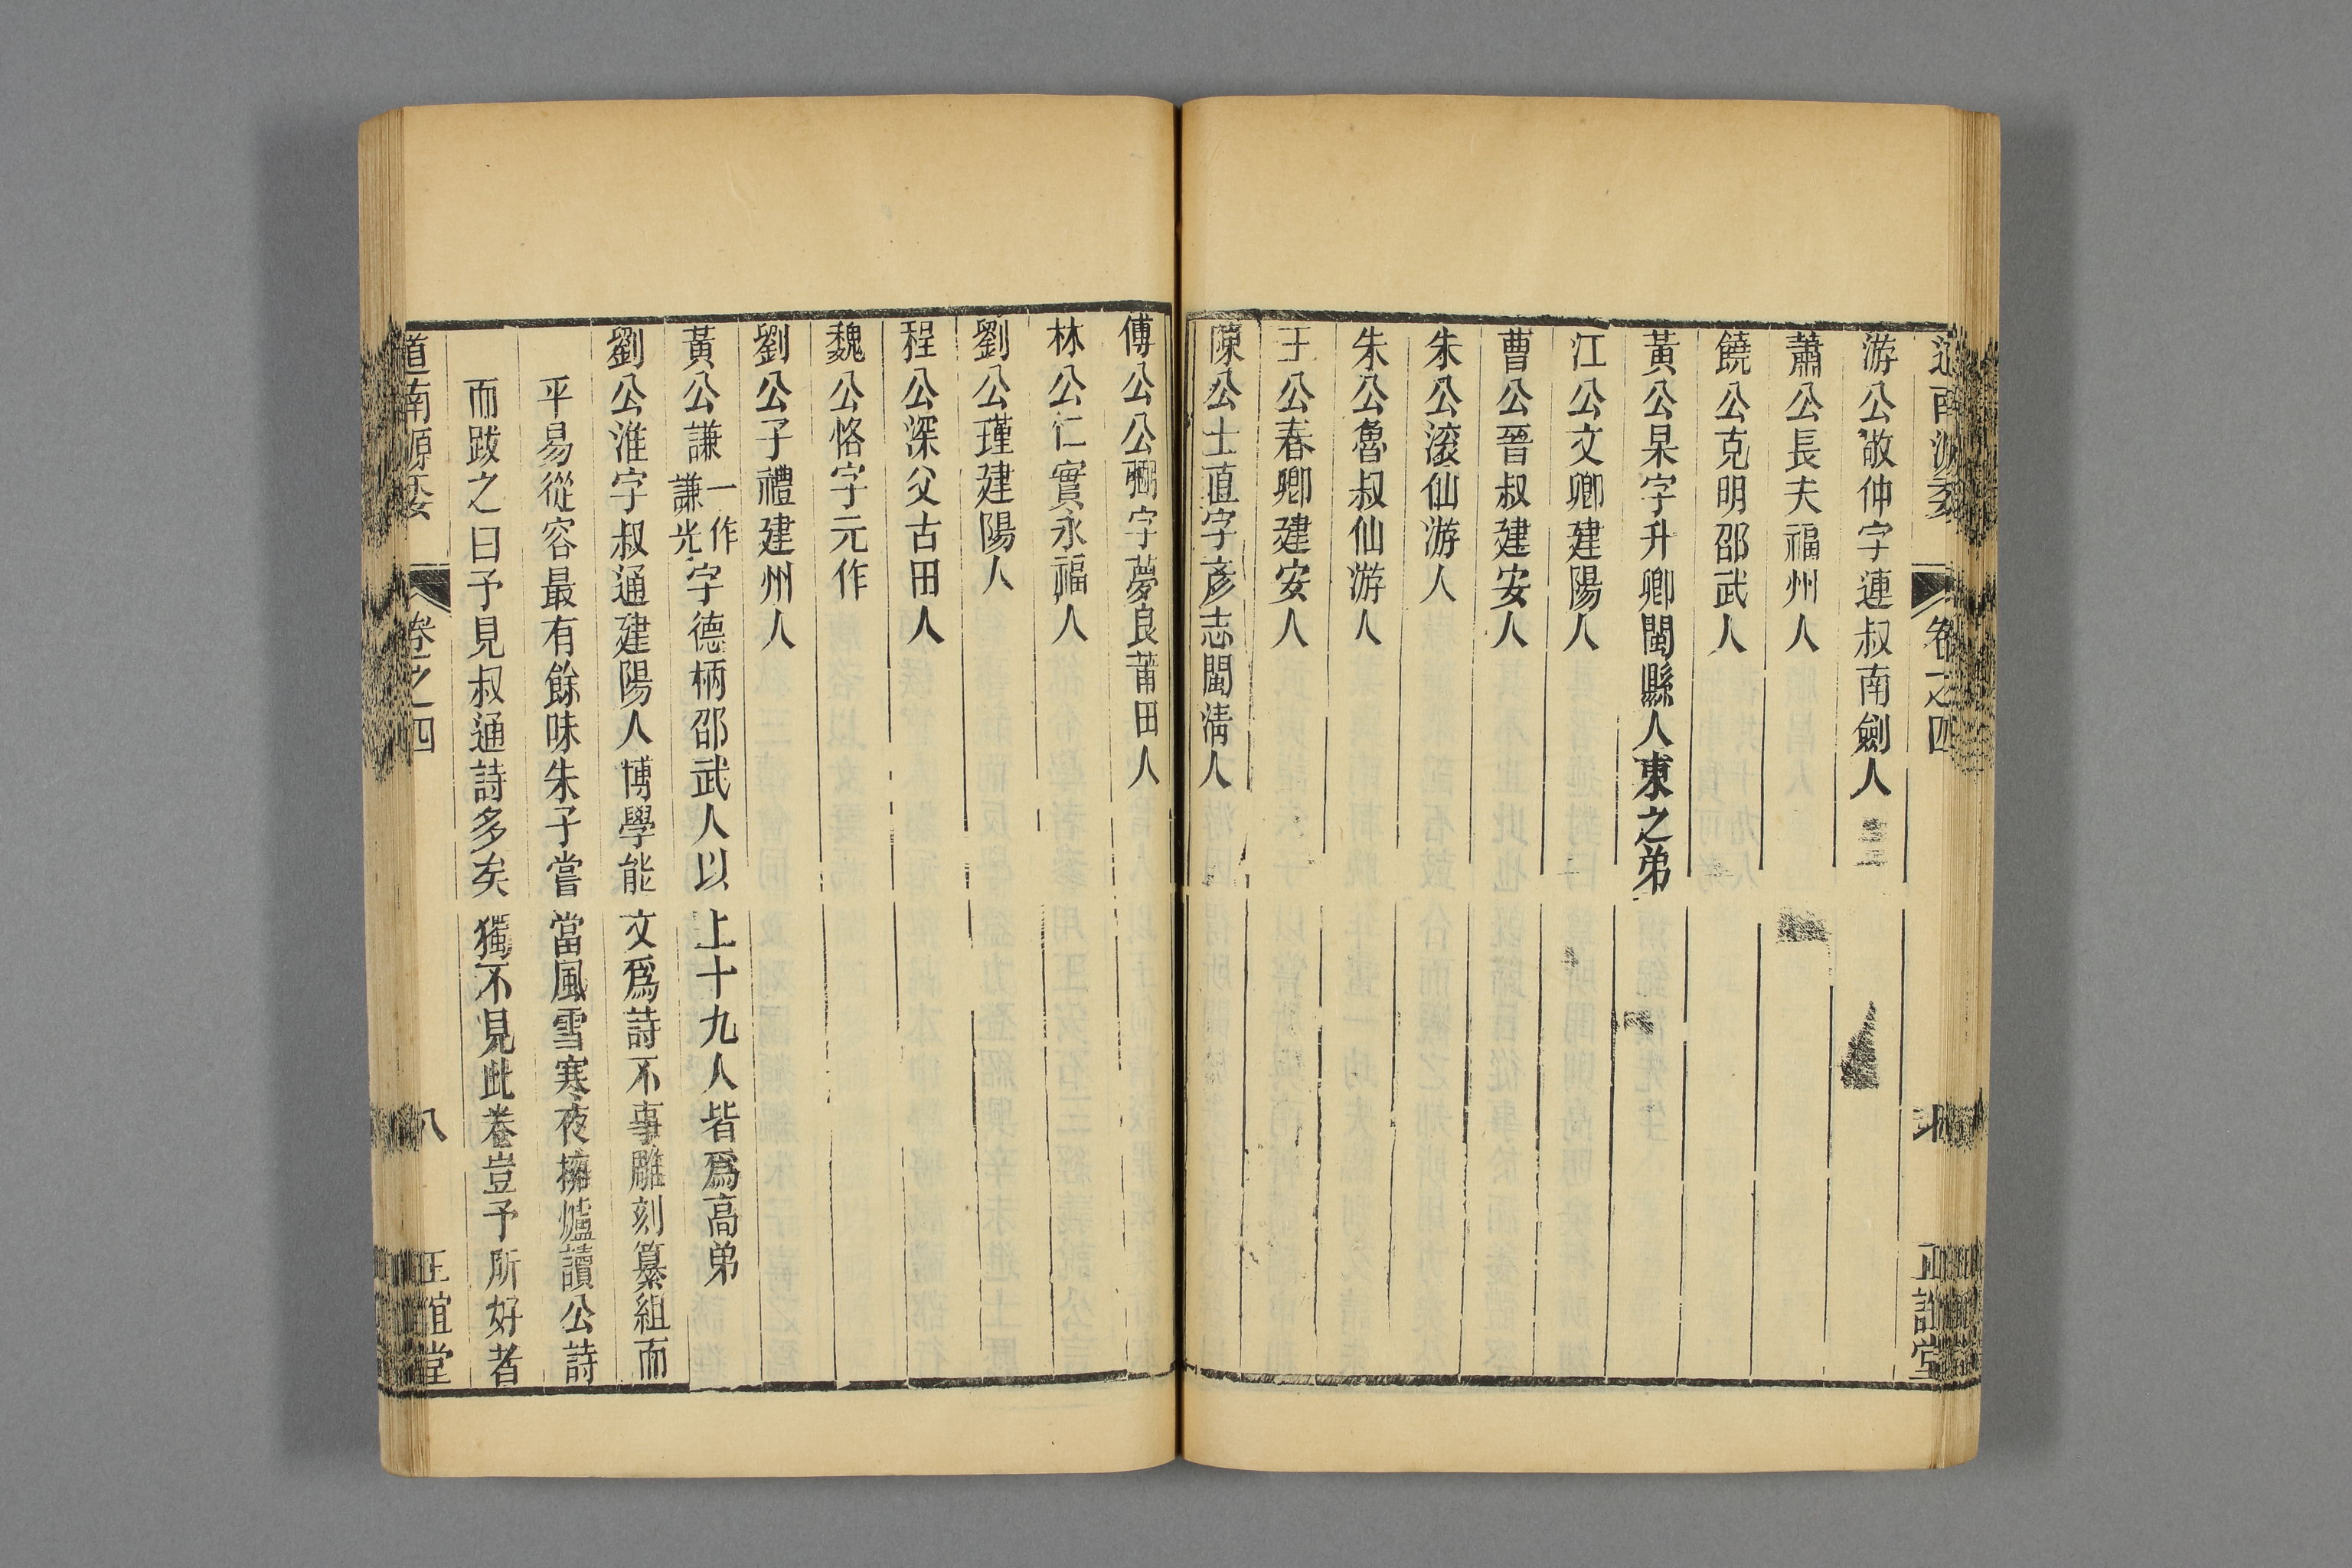 道南源委 卷之四 正誼堂
游公敬仲字連叔南劍人
蕭公長夫福州人
饒公克明邵武人
黃公杲字升卿閩縣人東之弟
江公文卿建陽人
曹公晉叔建安人
朱公滚仙游人
朱公魯叔仙游人
王公春卿建安人
陳公士直字彥志閩清人
傅公公弼字夢良莆田人
林公仁實永福人
劉公瑾建陽人
程公深父古田人
魏公恪字元作
劉公子禮建州人
黃公謙一作謙光字德柄邵武人以上十九人皆爲高弟
劉公淮字叔通建陽人博學能文爲詩不事雕刻纂組而
平易從容最有餘味朱子嘗當風雪寒夜擁爐讀公詩
而跋之曰予見叔通詩多矣獨不見此卷豈予所好者
道南源委 卷之四 八 正誼堂